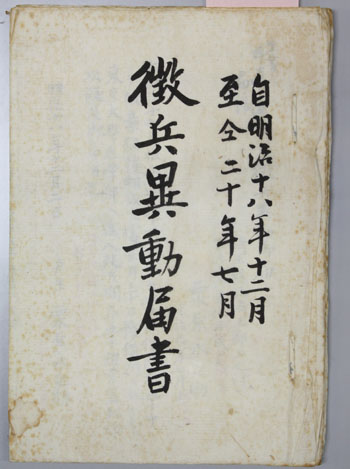 自明治十八年十二月
至仝二十年七月
徴兵異動届書